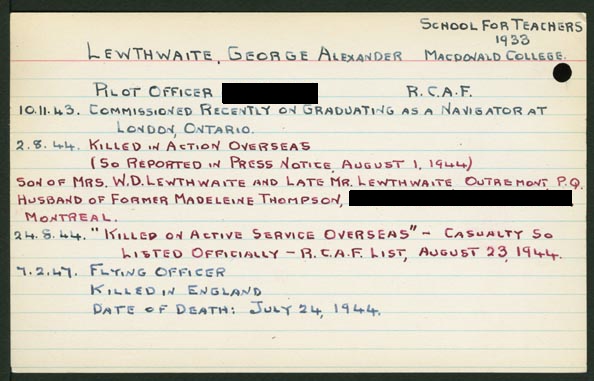 SCHOOL FOR TEACHERS
1933
LEWTHWAITE, GEORGE ALEXANDER MACDONALD COLLEGE.
PILOT OFFICER R.C.A.F.
10.11.43. COMMISSIONED RECENTLY ON GRADUATING AS A NAVIGATOR AT
LONDON, ONTARIO.
2.8.44. KILLED IN ACTION OVERSEAS
(SO REPORTED IN PRESS NOTICE, AUGUST 1, 1944)
SON OF MRS. W.D. LEWTHWAITE AND LATE MR. LEWTHWAITE OUTREMONT P.Q.
HUSBAND OF FORMER MADELEINE THOMPSON,
MONTREAL.
24.8.44. "KILLED ON ACTIVE SERVICE OVERSEAS" - CASUALTY SO
LISTED OFFICIALLY - R.C.A.F. LIST, AUGUST 23, 1944.
7.2.47. FLYING OFFICER
KILLED IN ENGLAND
DATE OF DEATH: JULY 24, 1944.